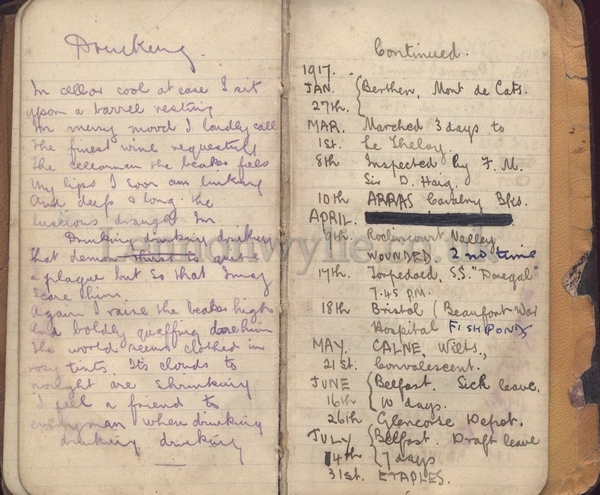 Drinking.
In cellar cool at ease I sit
upon a barrel resting
In merry mood I loudly call
The finest wine requesting
The cellarman the beaker fills
My lips I soon am linking
And deep & long the
luscious draught I'm
Drinking drinking drinking
That demon thirst is quite
a plague but so that I may
scare him.
Again I raise the beaker high
And boldly quaffing dare him
The world seems clothed in
rosy tints. Its clouds to
nought are shrinking
I feel a friend to
every man when drinking
drinking drinking
Continued.
1917.
JAN. Berthen, Mont de Cats.
27th.
MAR. Marched 3 days to
1st. Le Theloy.
8th Inspected By F.M.
Sir D. Haig.
10th ARRAS Cavalry Bks.
APRIL.
9th Roclincourt Valley
WOUNDED. 2nd time
17th Torpedoed, S.S. "Donegal"
7.45 P.M.
18th Bristol (Beaufort War
Hospital FISHPONDS
MAY. CALNE, Wilts.,
21st. Convalescent.
JUNE Belfast. Sick leave.
16th 10 days.
26th Glencorse Depot.
JULY Belfast. Draft leave
14th 7 days
31st. ETAPLES.